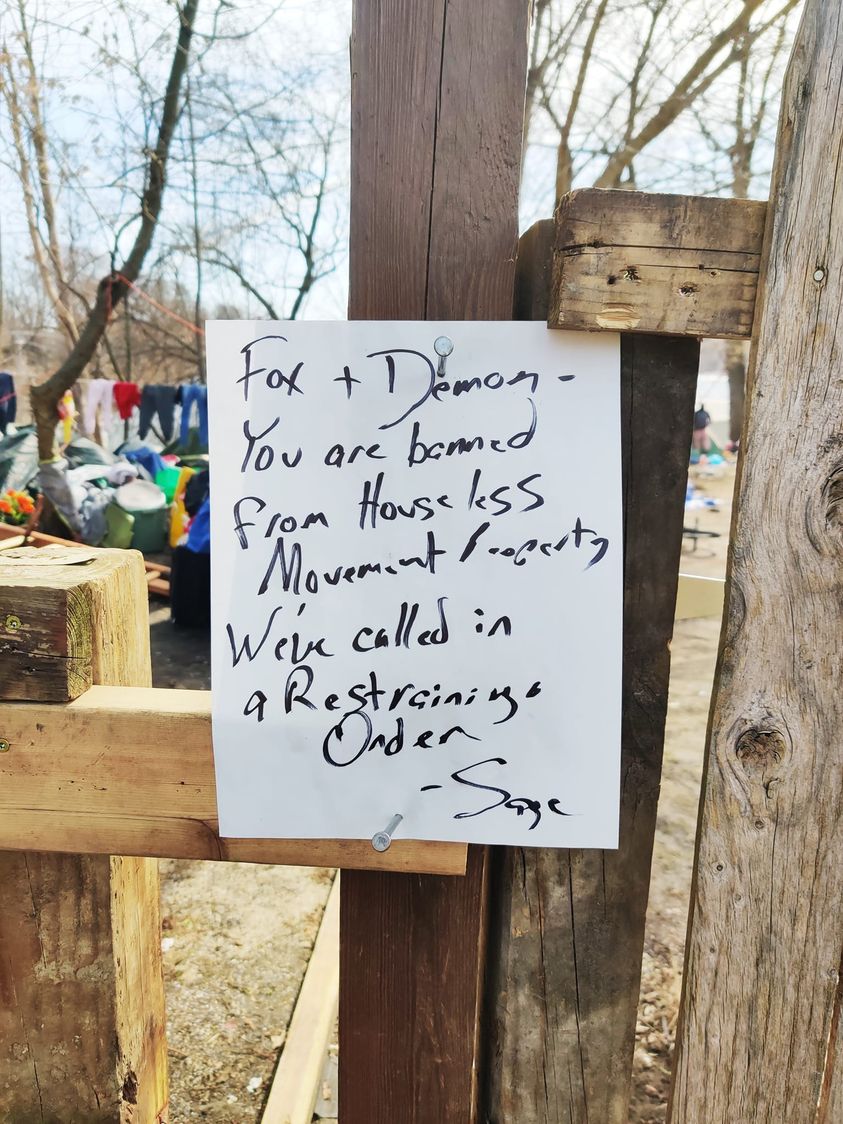 Fox + Demon -
You are banned
from Houseless
Movement Property
We've called in
a Restraining
Order
- Sage